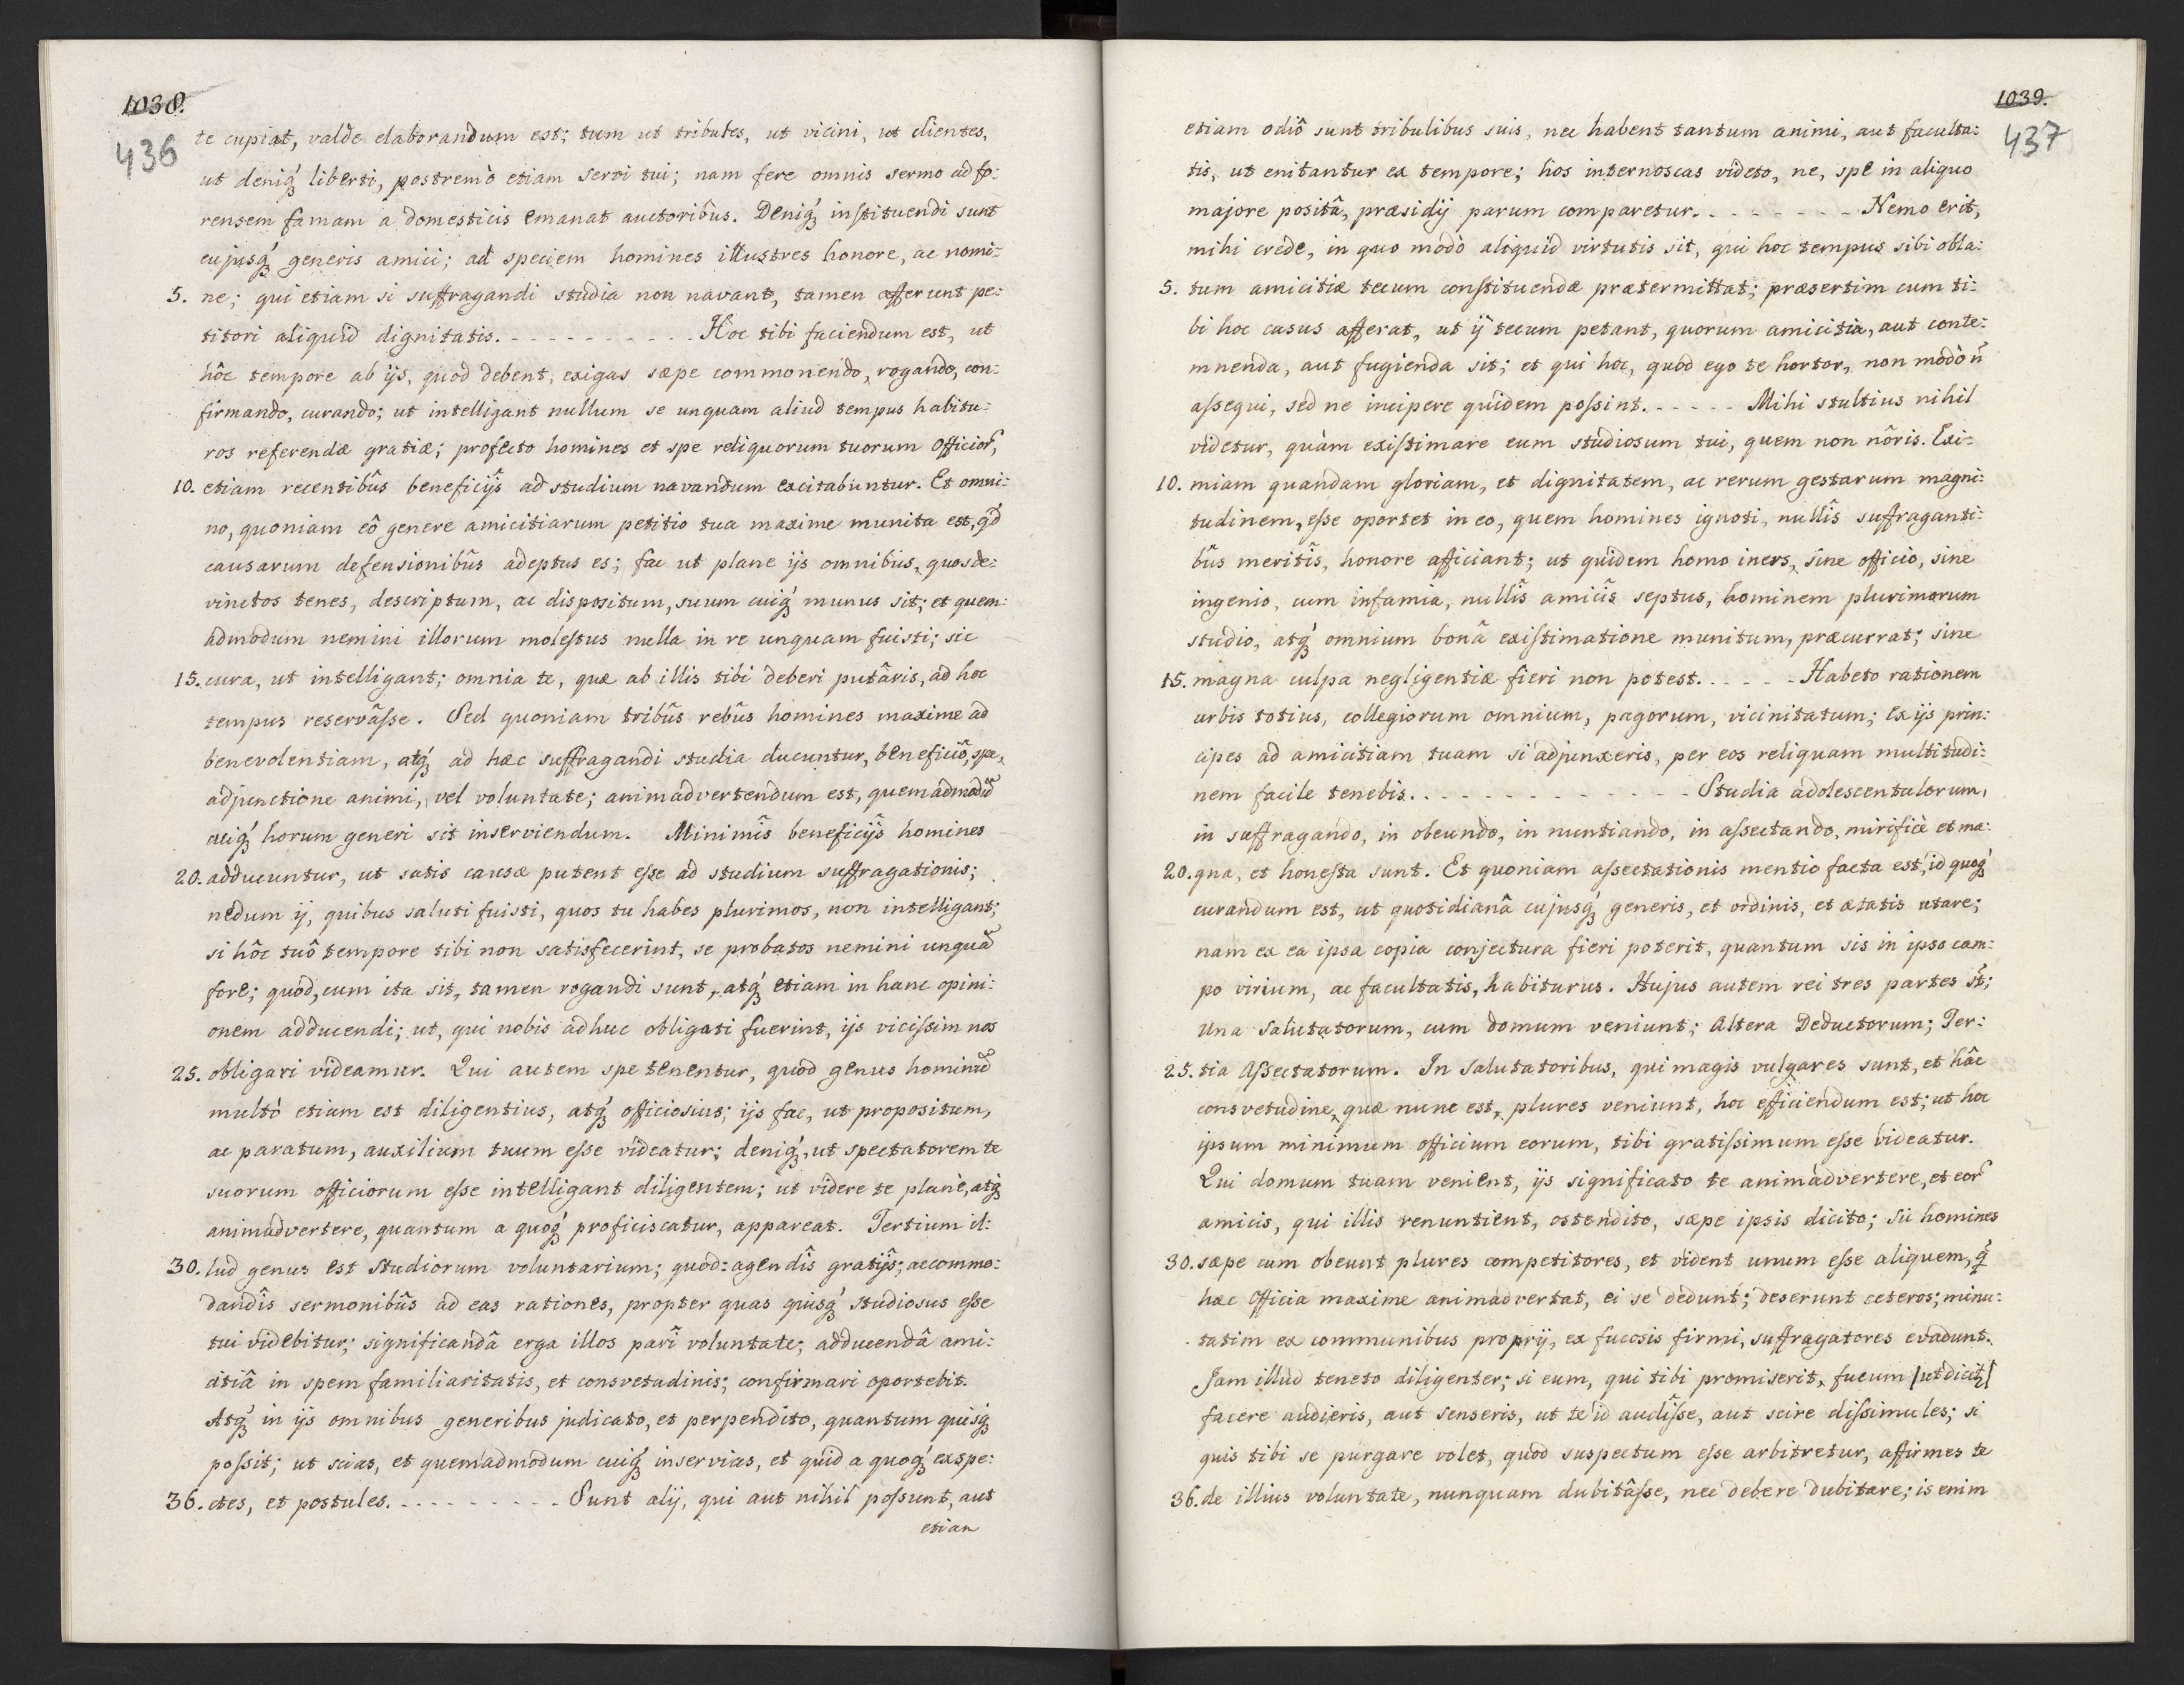 1038.
436
te cupiat, valde elaborandum est; tum ut tribules, ut vicini, ut clientes,
ut deniq́ꝫ liberti, postremò etiam servi tui; nam fere omnis sermo ad fo:
rensem famam a domesticis emanat auctoribus. Deniq́ꝫ inſtituendi sunt
cujusq́ꝫ generis amici; ad speciem homines illustres honore, ac nomi:
5. ne; qui etiam si suffragandi studia non navant, tamen afferunt pe:
titori aliquid dignitatis. - - - - - - - - - - Hoc tibi faciendum est, ut
hôc tempore ab ijs, quod debent, exigas sæpe commonendo, rogando, con:
firmando, curando; ut intelligant nullum se unquam aliud tempus habitu:
ros referendæ gratiæ; profecto homines et spe reliquorum tuorum officior̃,
10. etiam recentibûs beneficijs ad studium navandum excitabuntur. Et omni:
no, quoniam eô genere amicitiarum petitio tua maxime munita est, qd́
causarum defensionibûs adeptus es; fac ut plane ijs omnibus, quos de:
vinctos tenes, descriptum, ac dispositum, suum cuiq́ꝫ munus sit; et quem:
admodum nemini illorum moleſtus nulla in re unquam fuisti; sic
15. cura, ut intelligant; omnia te, quæ ab illis tibi deberi putâris, ad hoc
tempus reservâſse. Sed quoniam tribûs rebûs homines maxime ad
benevolentiam, atq́ꝫ ad hæc suffragandi studia ducuntur, beneficiô, spe,
adjunctione animi, vel voluntate; animadvertendum est, quemadmodũ
cuiq́ꝫ horum generi sit inserviendum. Minimîs beneficijs homines
20. adducuntur, ut satis causæ putent eſse ad studium suffragationis;
nedum ij, quibus saluti fuisti, quos tu habes plurimos, non intelligant;
si hôc tuô tempore tibi non satisfecerint, se probatos nemini unquã
fore; quod, cum ita sit, tamen rogandi sunt, atq́ꝫ etiam in hanc opini:
onem adducendi; ut, qui nobis adhuc obligati fuerint, ijs viciſsim nos
25. obligari videamur. Qui autem spe tenentur, quod genus hominũ
multò etiam est diligentius, atq́ꝫ officiosius; ijs fac, ut propositum,
ac paratum, auxilium tuum eſse videatur; deniq́ꝫ, ut spectatorem te
suorum officiorum eſse intelligant diligentem; ut videre te planè, atq́ꝫ
animadvertere, quantum a quoq́ꝫ proficiscatur, appareat. Tertium il:
30. lud genus est studiorum voluntarium; quod: agendîs gratijs; accommo:
dandîs sermonibûs ad eas rationes, propter quas quisq́ꝫ studiosus eſse
tui videbitur; significandâ erga illos parî voluntate; adducendâ ami:
citiâ in spem familiaritatis, et consvetudinis; confirmari oportebit.
Atq́ꝫ in ijs omnibus generibus judicato, et perpendito, quantum quisq́ꝫ
poſsit; ut scias, et quemadmodum cuiq́ꝫ inservias, et quid a quoq́ꝫ exspe:
36. ctes, et postules. - - - - - - - - - Sunt alij, qui aut nihil poſsunt, aut
etiam
1039.
437
etiam odiô sunt tribulibus suis, nec habent tantum animi, aut faculta:
tis, ut enitantur ex tempore; hos internoscas videto, ne, spe in aliquo
majore positâ, præsidij parum comparetur. - - - - - - - Nemo erit,
mihi crede, in quo modò aliquid virtutis sit, qui hoc tempus sibi obla:
5. tum amicitiæ tecum conſtituendæ prætermittat; præsertim cum ti:
bi hoc casus afferat, ut ij tecum petant, quorum amicitia, aut conte:
mnenda, aut fugienda sit; et qui hoc, quod ego te hortor, non modò ñ
aſsequi, sed ne incipere quidem poſsint. - - - - - Mihi stultius nihil
videtur, quàm exiſtimare eum studiosum tui, quem non nôris. Exi:
10. miam quandam gloriam, et dignitatem, ac rerum gestarum magni:
tudinem, eſse oportet in eo, quem homines ignoti, nullîs suffraganti:
bûs meritîs, honore afficiant; ut quidem homo iners, sine officio, sine
ingenio, cum infamia, nullîs amicîs septus, hominem plurimorum
studio, atq́ꝫ omnium bonâ exiſtimatione munitum, præcurrat; sine
15. magna culpa negligentiæ fieri non potest. - - - - - Habeto rationem
urbis totius, collegiorum omnium, pagorum, vicinitatum; ex ijs prin:
cipes ad amicitiam tuam si adjunxeris, per eos reliquam multitudi:
nem facile tenebis. - - - - - - - - - - - - - Studia adolescentulorum,
in suffragando, in obeundo, in nuntiando, in aſsectando, mirificè et ma:
20. gna, et honeſta sunt. Et quoniam aſsectationis mentio facta est, id quoq́ꝫ
curandum est, ut quotidianâ cujusq́ꝫ generis, et ordinis, et ætatis utare;
nam ex ea ipsa copia conjectura fieri poterit, quantum sis in ipso cam:
po virium, ac facultatis, habiturus. Hujus autem rei tres partes st̃;
Una Salutatorum, cum domum veniunt; Altera Deductorum; Ter:
25. tia Aſsectatorum. In Salutatoribus, qui magis vulgares sunt, et hâc
consvetudine, quæ nunc est, plures veniunt, hoc efficiendum est; ut hoc
ipsum minimum officium eorum, tibi gratiſsimum eſse videatur.
Qui domum tuam venient, ijs significato te animadvertere, et eor̃
amicis, qui illis renuntient, ostendito, sæpe ipsis dicito; sic homines
30. sæpe cum obeunt plures competitores, et vident unum eſse aliquem, q́
hæc officia maxime animadvertat, ei se dedunt; deserunt ceteros; minu:
tatim ex communibus proprij, ex fucosis firmi, suffragatores evadunt.
Jam illud teneto diligenter; si eum, qui tibi promiserit, fucum /ut dicitꝫ/
facere audieris, aut senseris, ut te id audîſse, aut scire diſsimules; si
quis tibi se purgare volet, quod suspectum eſse arbitretur, affirmes te
36. de illius voluntate, nunquam dubitâſse, nec debere dubitare; is enim